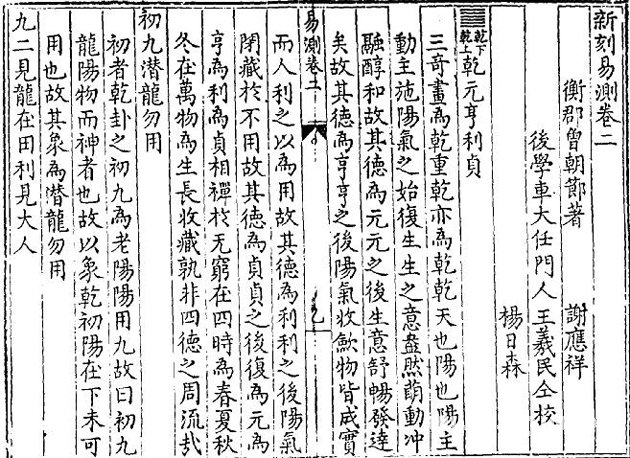 新刻易測卷二
衡郡曾朝節著 謝應祥
後學車大任門人王羲民仝校
楊日森
䷀乾下乾上乾元亨利貞
三奇畫為乾重乾亦為乾乾天也陽也陽主
動主施陽氣之始復生生之意盎然萌動冲
融醇和故其德為元元之後生意舒暢發達
矣故其德為亨亨之後陽氣收歛物皆成實
易測卷二
而人利之以為用故其德為利利之後陽氣
閉藏於不用故其德為貞貞之後復為元為
亨為利為貞相禪於无窮在四時為春夏秋
冬在萬物為生長收藏孰非四德之周流哉
初九潛龍勿用
初者乾卦之初九為老陽陽用九故曰初九
龍陽物而神者也故以象乾初陽在下未可
用也故其象為潛龍勿用
九二見龍在田利見大人